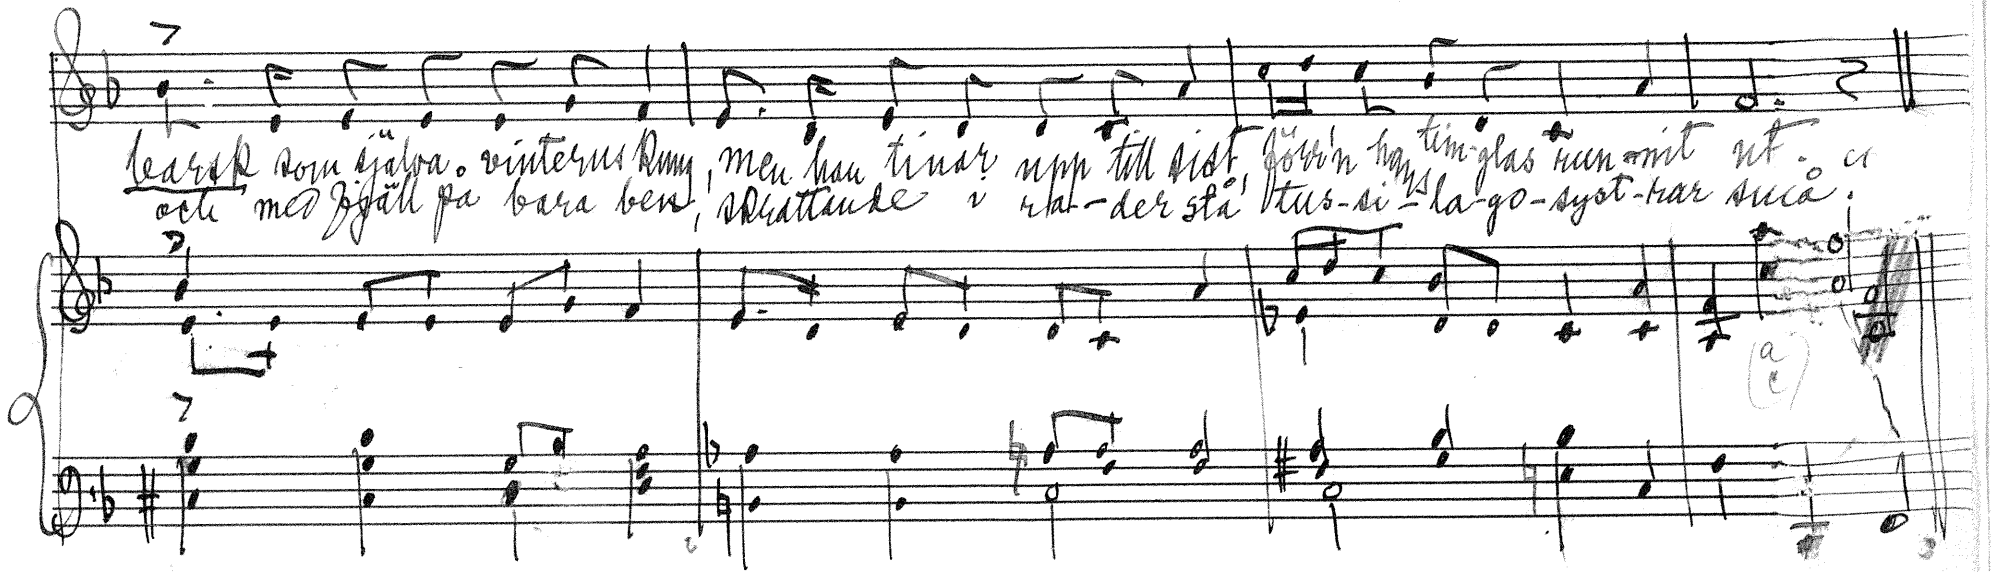 barsk som själva vinterns kung, men han tinar upp till sist, förr'n hans tim-glas run-nit ut.
och med fjäll på bara ben, skrattande i ra-der stå tus-si-la-go-syst-rar små.
(a
c)